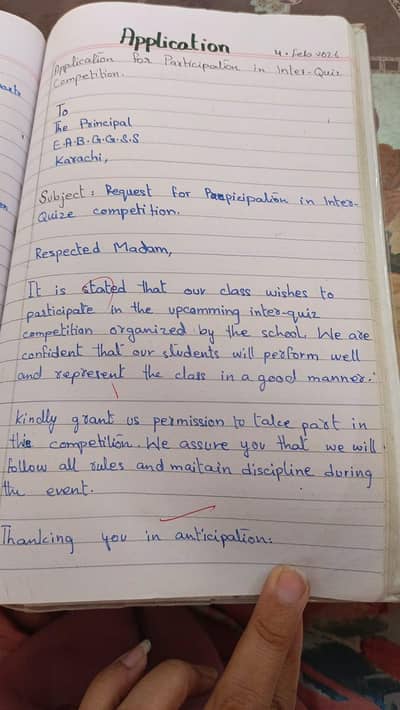 Application
4. Feb 2026
Application for Participation in Inter-Quiz
Competition.
To
The Principal
E.A.B.G.G.S.S
Karachi,
Subject: Request for Parpicipation in Inter-
Quize competition.
Respected Madam,
It is stated that our class wishes to
participate in the upcomming inter-quiz
competition organized by the school. We are
confident that our students will perform well
and represent the class in a good manner.
kindly grant us permission to take part in
this competition. We assure you that we will
follow all rules and maitain discipline during
the event.
Thanking you in anticipation.